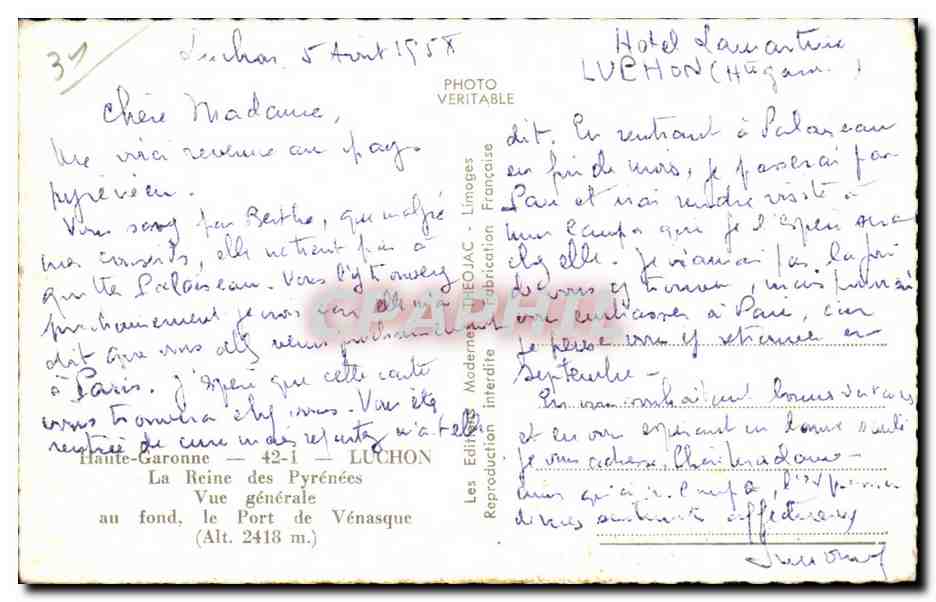 31
Luchon 5 Août 1958
Hotel Lamartine
LUCHON (Hte Garonne)
PHOTO
VERITABLE
Chère Madame,
Me voici revenue au pays
pyrénéen.
Vous savez par Berthe, que malgré
mes conseils, elle ne tient pas à
quitter Palaiseau. Vous l'y trouverez
prochainement je crois car elle m'a
dit que vous alliez venir prochainement
à Paris. J'espère que cette carte
vous trouvera chez vous. Vous étiez
rentrée de cure mais reposée m'a-t-elle
dit. En rentrant à Palaiseau
en fin de mois, je passerai par
Paris et irai rendre visite à
que je l'espère sera
chez elle. Je n'aurai pas la joie
de vous y trouver, mais pourrai
vous embrasser à Paris, car
je pense vous y retrouver en
Septembre.
En vous souhaitant bonnes vacances
et en vous espérant en bonne santé
je vous adresse, Chère Madame
ainsi qu'à l'expression
de mes sentiments affectueux
Haute-Garonne — 42-1 — LUCHON
La Reine des Pyrénées
Vue générale
au fond, le Port de Vénasque
(Alt. 2418 m.)
Les Editions Modernes THEOJAC - Limoges
Reproduction interdite Fabrication Française
CPAPHIL